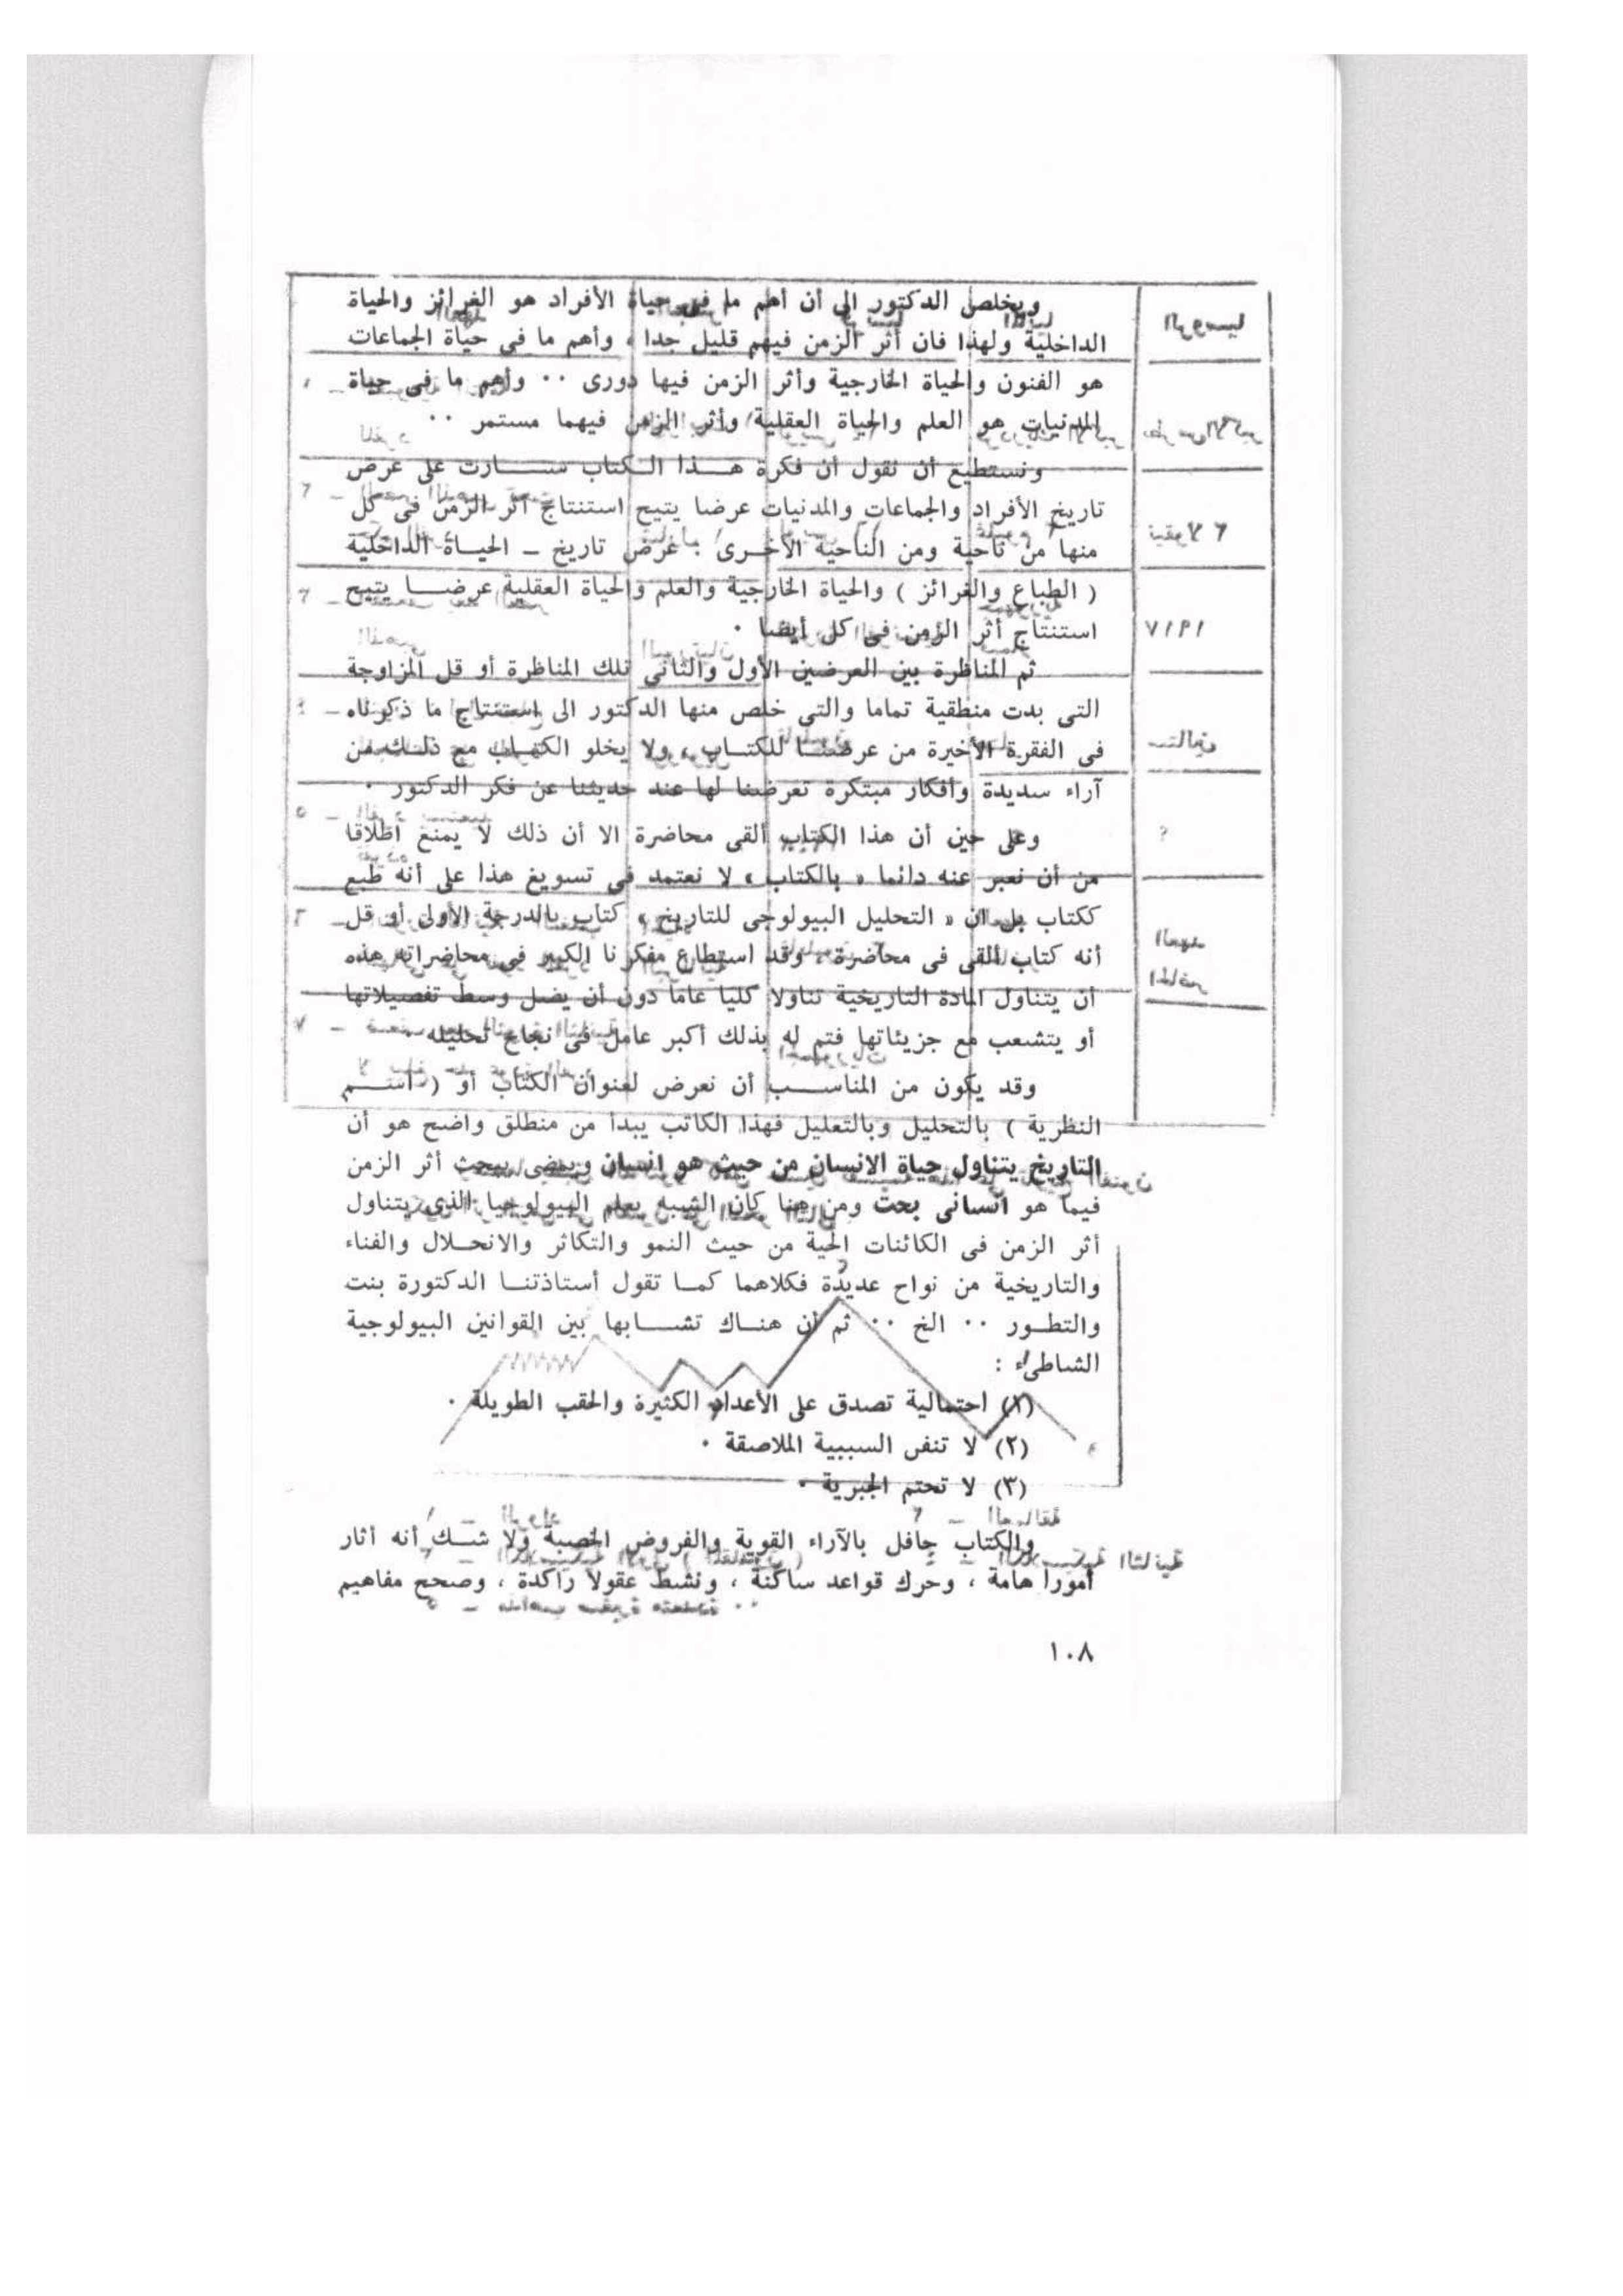 ويخلص الدكتور الى أن أهم ما فى حياة الأفراد هو الغرائز والحياة
الداخلية ولهذا فان أثر الزمن فيهم قليل جدا ، وأهم ما فى حياة الجماعات
هو الفنون والحياة الخارجية وأثر الزمن فيها دورى ٠٠ وأهم ما فى حياة
المدنيات هو العلم والحياة العقلية وأثر الزمن فيهما مستمر ٠٠
ونستطيع أن نقول أن فكرة هــذا الـكتاب ســـارت على عرض
تاريخ الأفراد والجماعات والمدنيات عرضا يتيح استنتاج أثر الزمن فى كل
منها من ناحية ومن الناحية الأخـرى : عرض تاريخ ـ الحيــاة الداخلية
( الطباع والغرائز ) والحياة الخارجية والعلم والحياة العقلية عرضــا يتيح
استنتاج أثر الزمن فى كل أيضا ٠
ثم المناظرة بين العرضين الأول والثانى تلك المناظرة أو قل المزاوجة
التى بدت منطقية تماما والتى خلص منها الدكتور الى استنتاج ما ذكرناه
فى الفقرة الأخيرة من عرضنــا للكتــاب ، ولا يخلو الكتــاب مع ذلــك من
آراء سديدة وأفكار مبتكرة تعرضنا لها عند حديثنا عن فكر الدكتور ٠
وعلى حين أن هذا الكتاب ألقى محاضرة الا أن ذلك لا يمنع اطلاقا
من أن نعبر عنه دائما « بالكتاب » لا نعتمد فى تسويغ هذا على أنه طبع
ككتاب بل ان « التحليل البيولوجى للتاريخ » كتاب بالدرجة الأولى أو قل
أنه كتاب ألقى فى محاضرة ، وقد استطاع مفكرنا الكبير فى محاضراته هذه
أن يتناول المادة التاريخية تناولا كليا عاما دون أن يضل وسط تفصيلاتها
أو يتشعب مع جزيئاتها فتم له بذلك أكبر عامل فى نجاح تحليله ٠
وقد يكون من المناســب أن نعرض لعنوان الكتاب أو ( اســم
النظرية ) بالتحليل وبالتعليل فهذا الكاتب يبدأ من منطلق واضح هو أن
التاريخ يتناول حياة الانسان من حيث هو انسان ويمضى يبحث أثر الزمن
فيما هو انسانى بحت ومن هنا كان الشبه بعلم البيولوجيا الذى يتناول
أثر الزمن فى الكائنات الحية من حيث النمو والتكاثر والانحــلال والفناء
والتاريخية من نواح عديدة فكلاهما كمـا تقول أستاذتنـا الدكتورة بنت
والتطـور ٠٠ الخ ٠٠ ثم أن هنـاك تشــابها بين القوانين البيولوجية
الشاطىء :
(١) احتمالية تصدق على الأعداد الكثيرة والحقب الطويلة ٠
(٢) لا تنفى السببية الملاصقة ٠
(٣) لا تحتم الجبرية ٠
والكتاب حافل بالآراء القوية والفروض الخصبة ولا شــك أنه أثار
أمورا هامة ، وحرك قواعد ساكنة ، ونشط عقولا راكدة ، وصحح مفاهيم
١٠٨